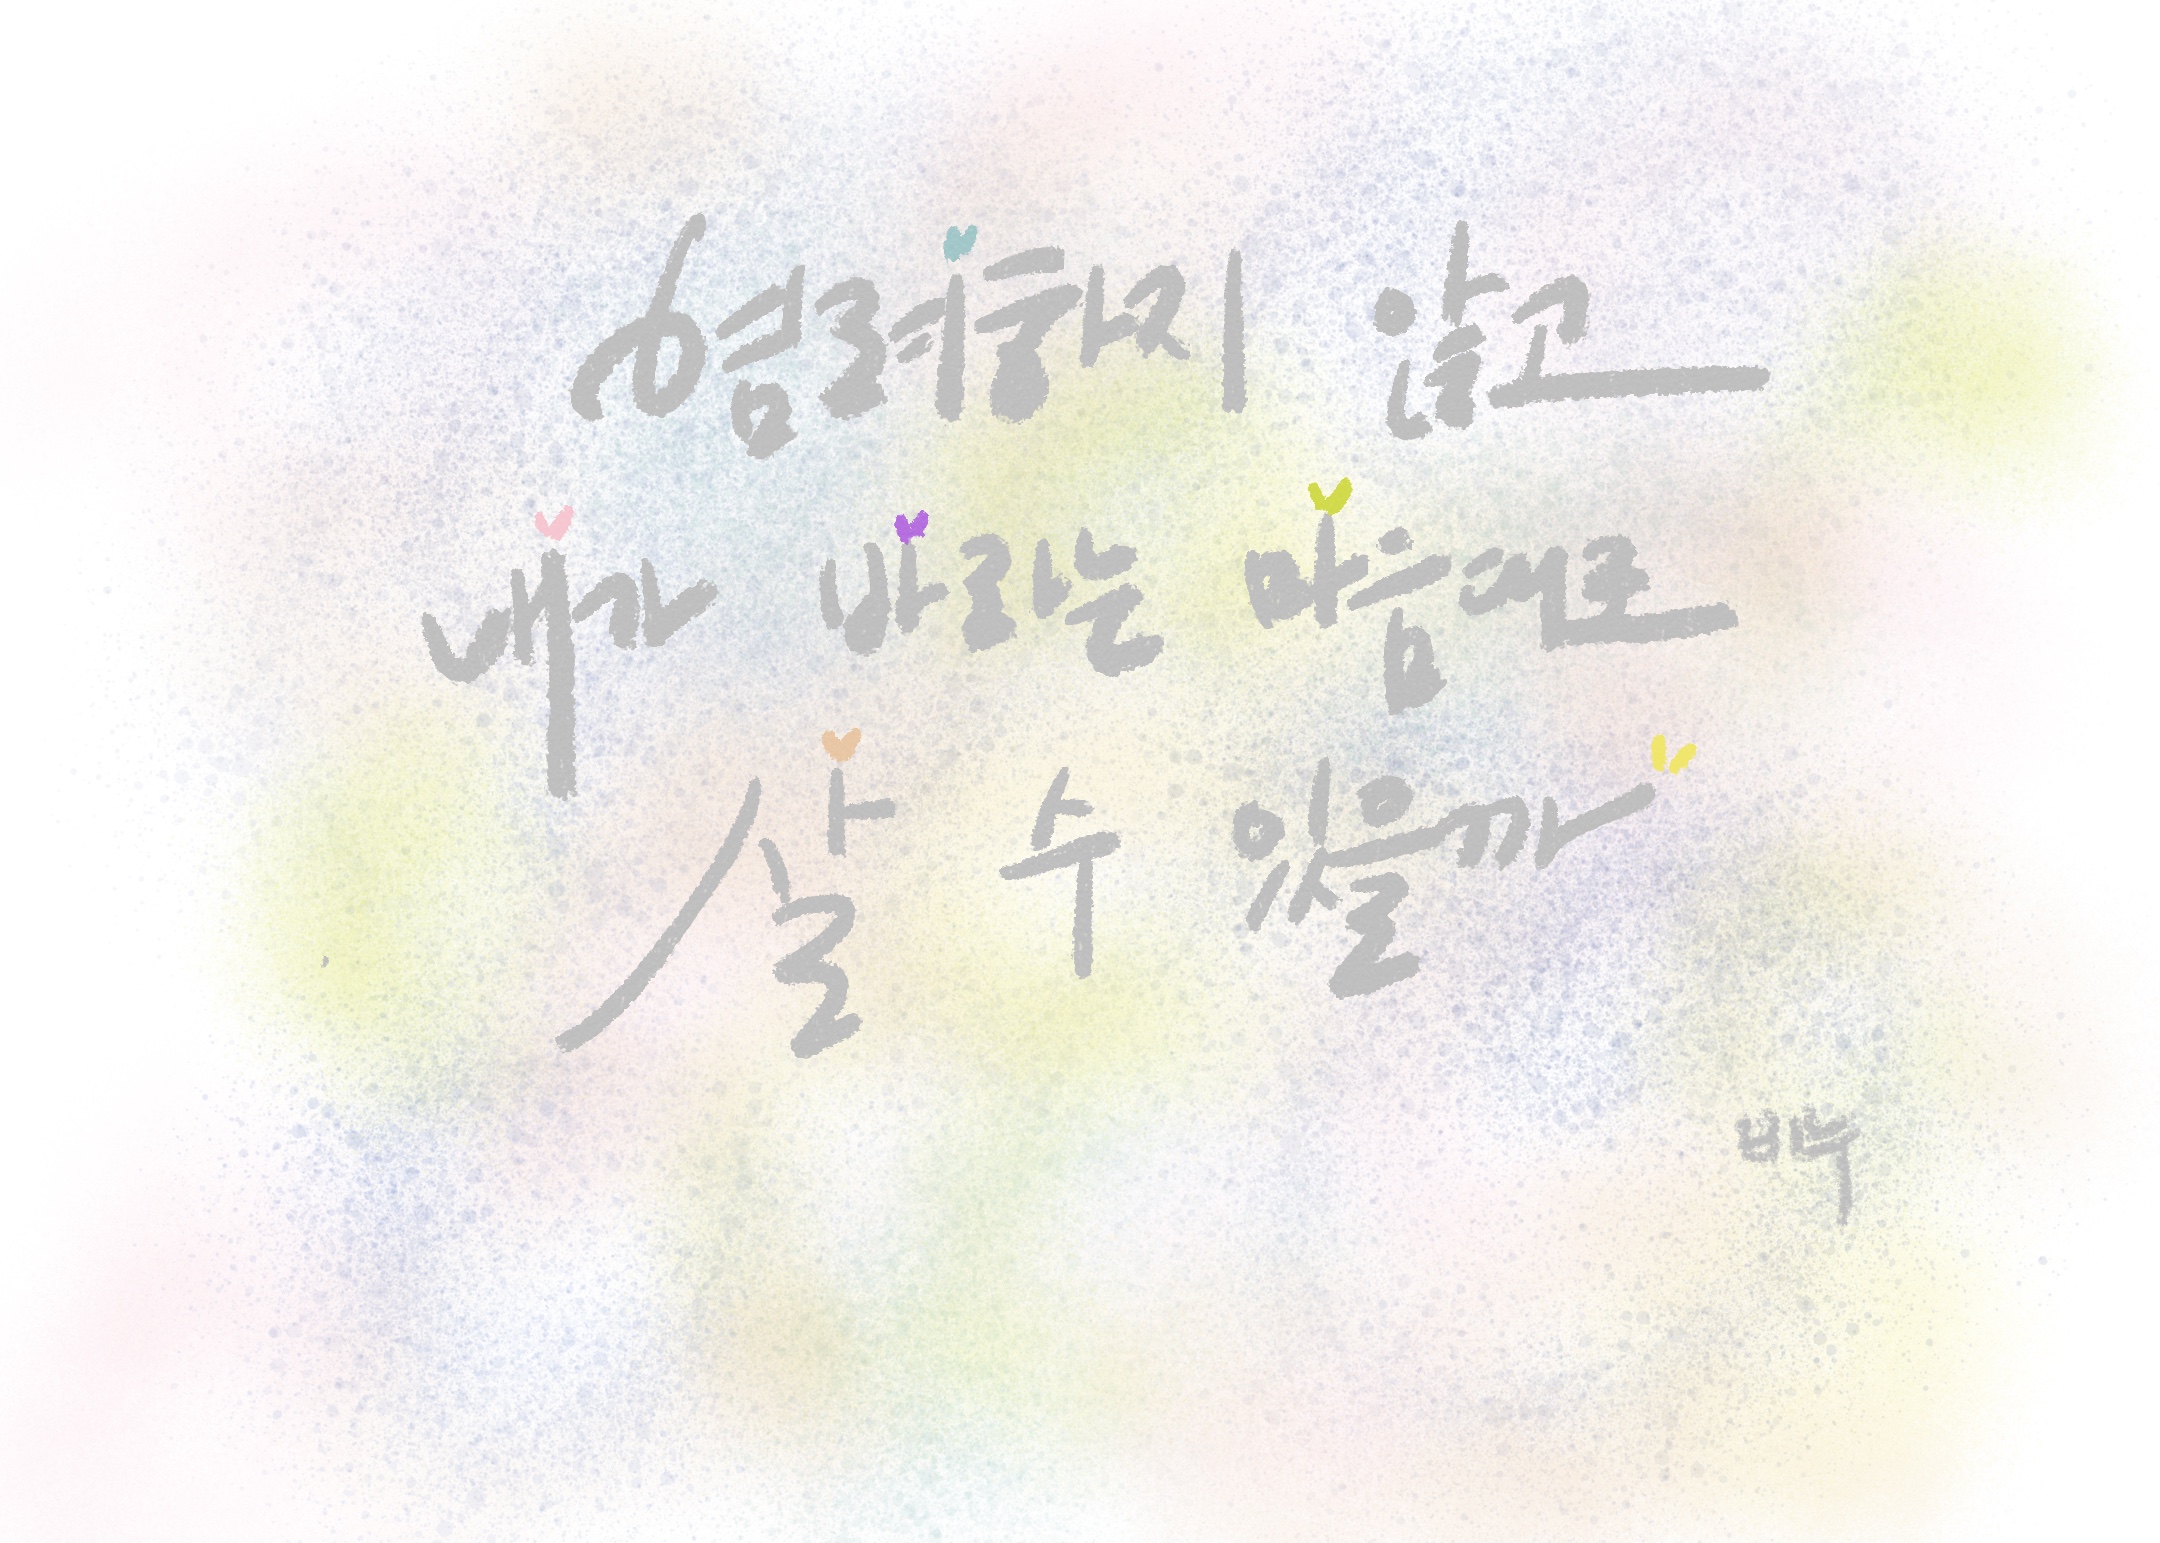 염려하지 않고
내가 바라는 마음대로
살 수 있을까
비누